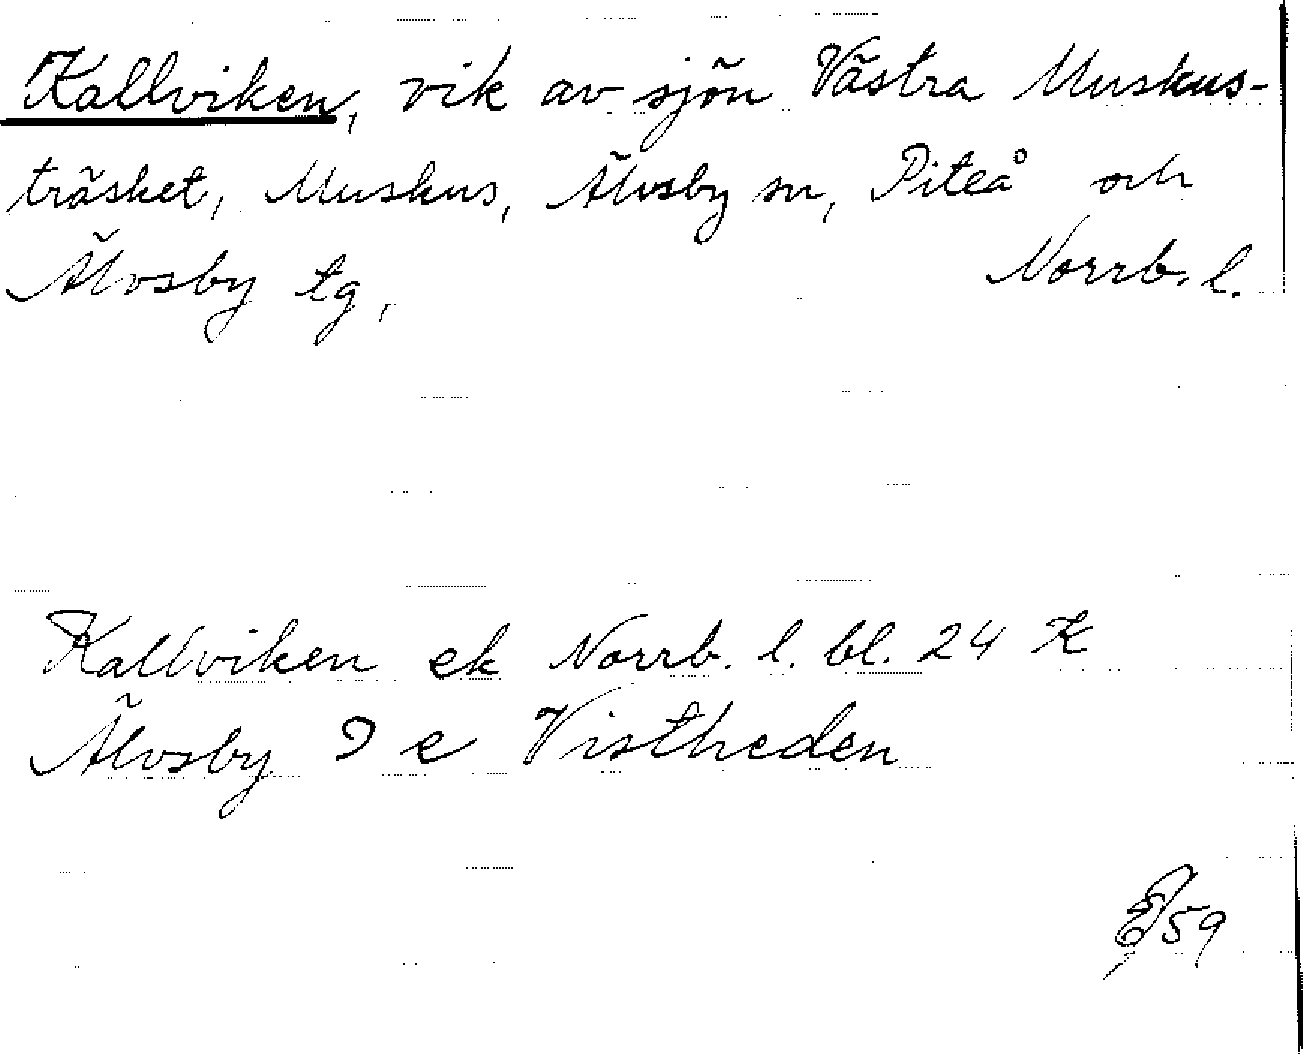 Kallviken, vik av sjön Västra Muskus-
träsket, Muskus, Älvsby sn, Piteå och
Älvsby tg, Norrb. l.
Kallviken ek Norrb. l. bl. 24 K
Älvsby 9 e Vistheden
59